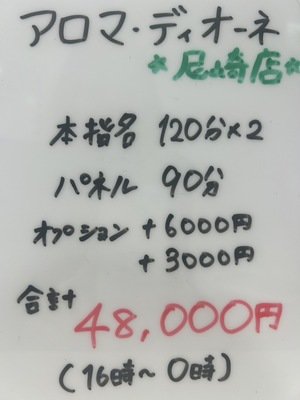 アロマ・ディオーネ
*尼崎店*
本指名 120分×2
パネル 90分
オプション +6000円
+3000円
合計
48,000円
(16時~0時)